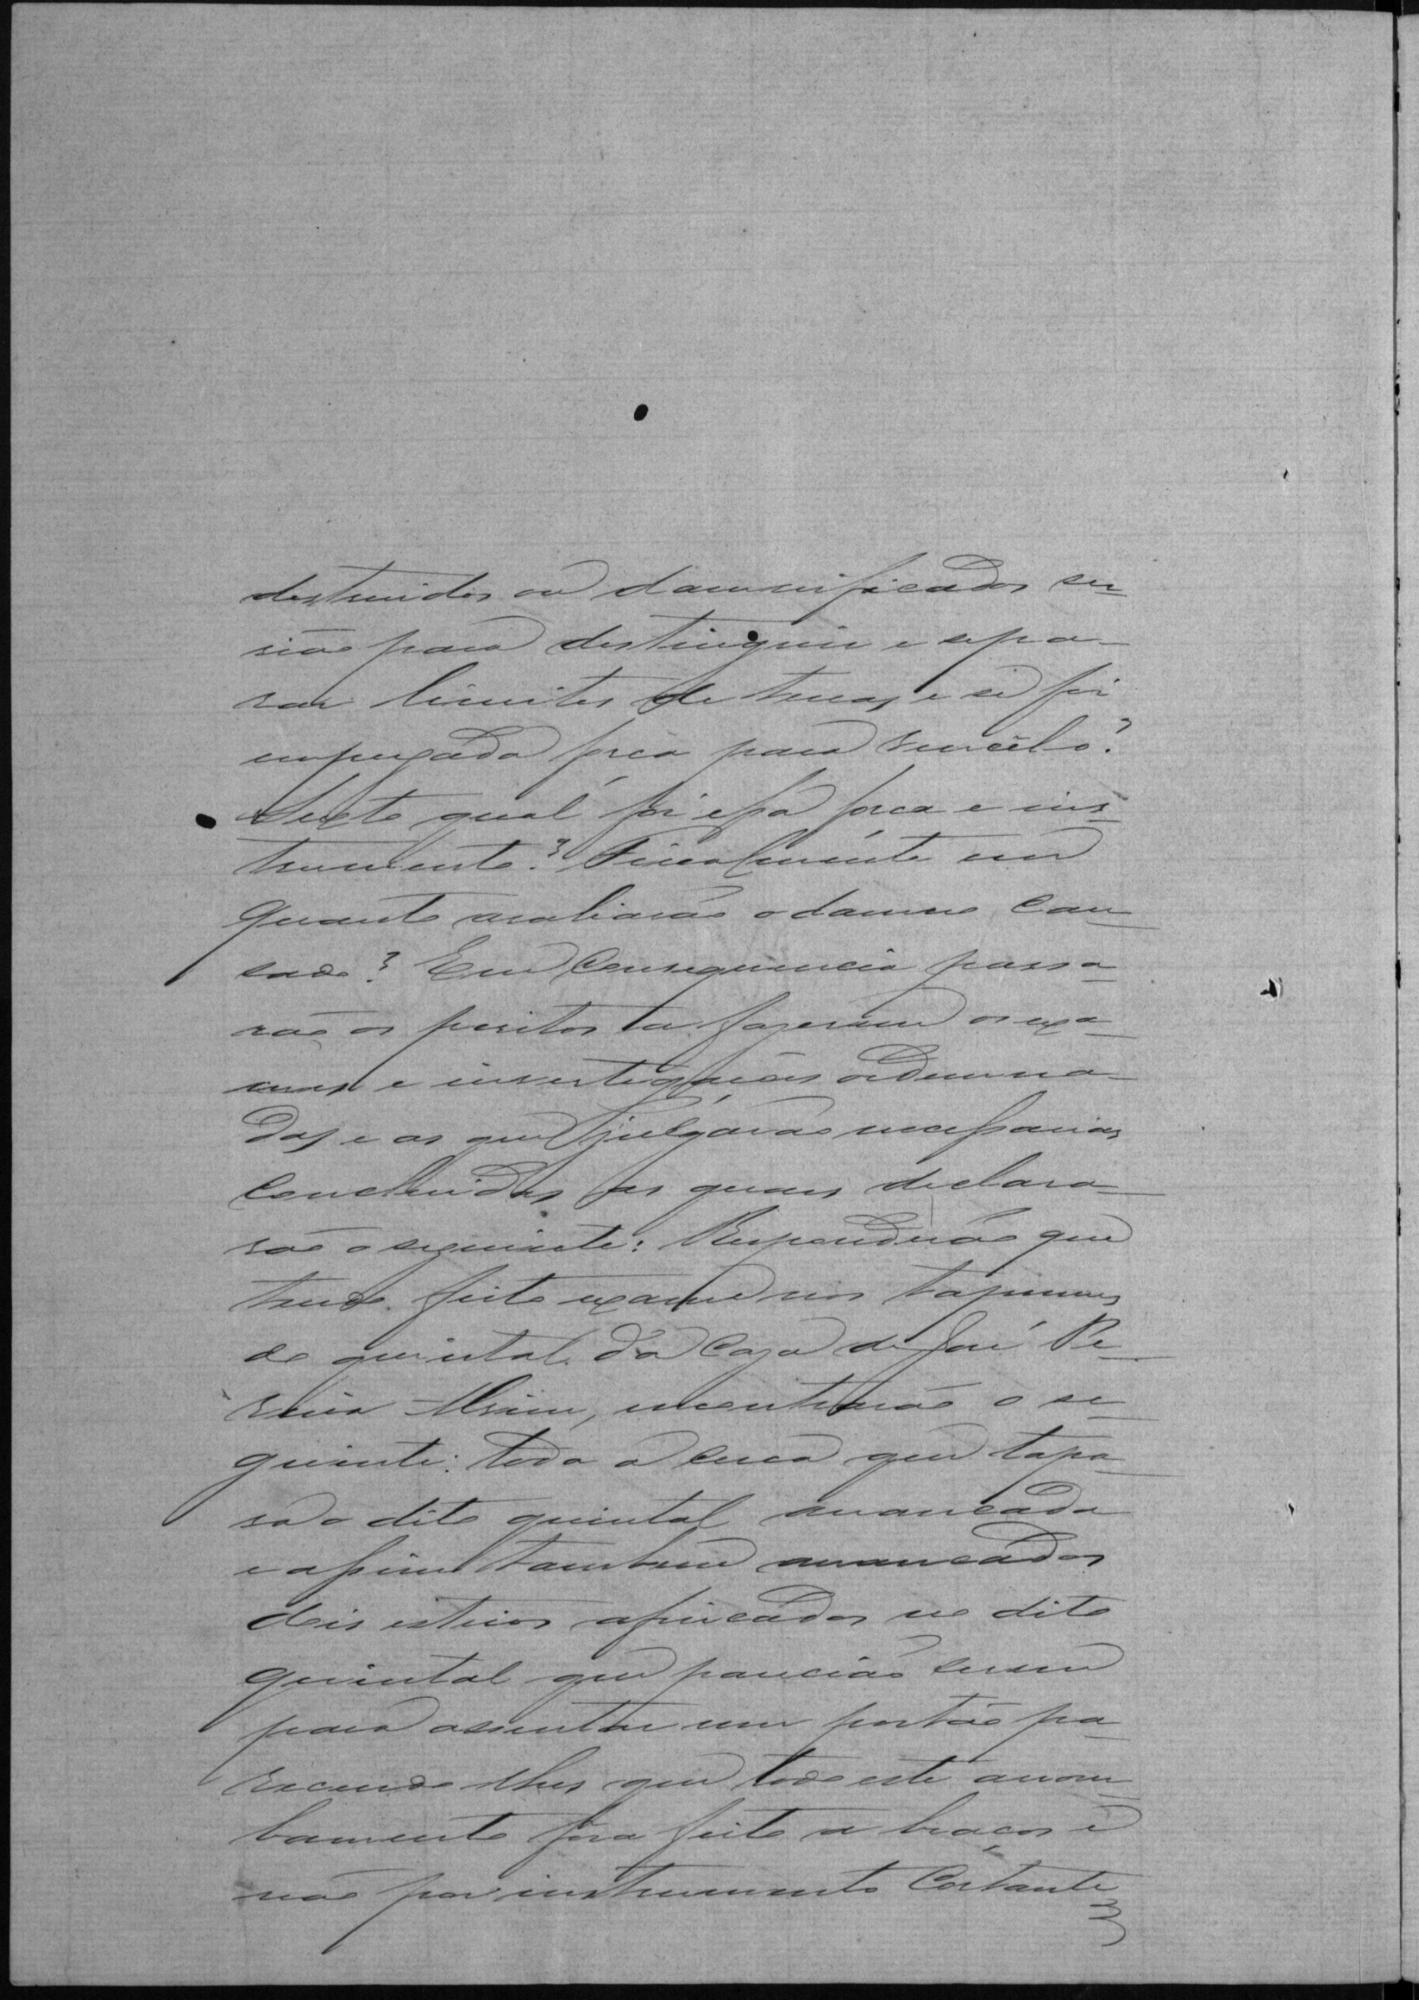 destruidos ou damnificados ser-
vião para destinguir e sepa-
rar limites de terras, e si foi
empregada força para vencêl-o?
Sexto qual foi essa força e ins-
trumento? Finalmente em
quanto avaliarão o damno cau-
sado? Em consequencia passa-
rão os peritos a fazerem os exa-
mes e investigações ordenna-
das e as que julgárão necessarias
concluidas as quaes declara-
rão o seguinte: Responderão que
tendo feito exame nos tapumes
do quintal da caza de José Pe-
reira encontrarão o se-
guinte: toda a cerca que tapa-
va o dito quintal arrancada
e assim tambem arrancados
dois esteios afincados no dito
quintal que parecião serem
para assentar um portão pa-
recendo-lhes que todo este arrom-
bamento fora feito a braços e
não por instrumento cortante